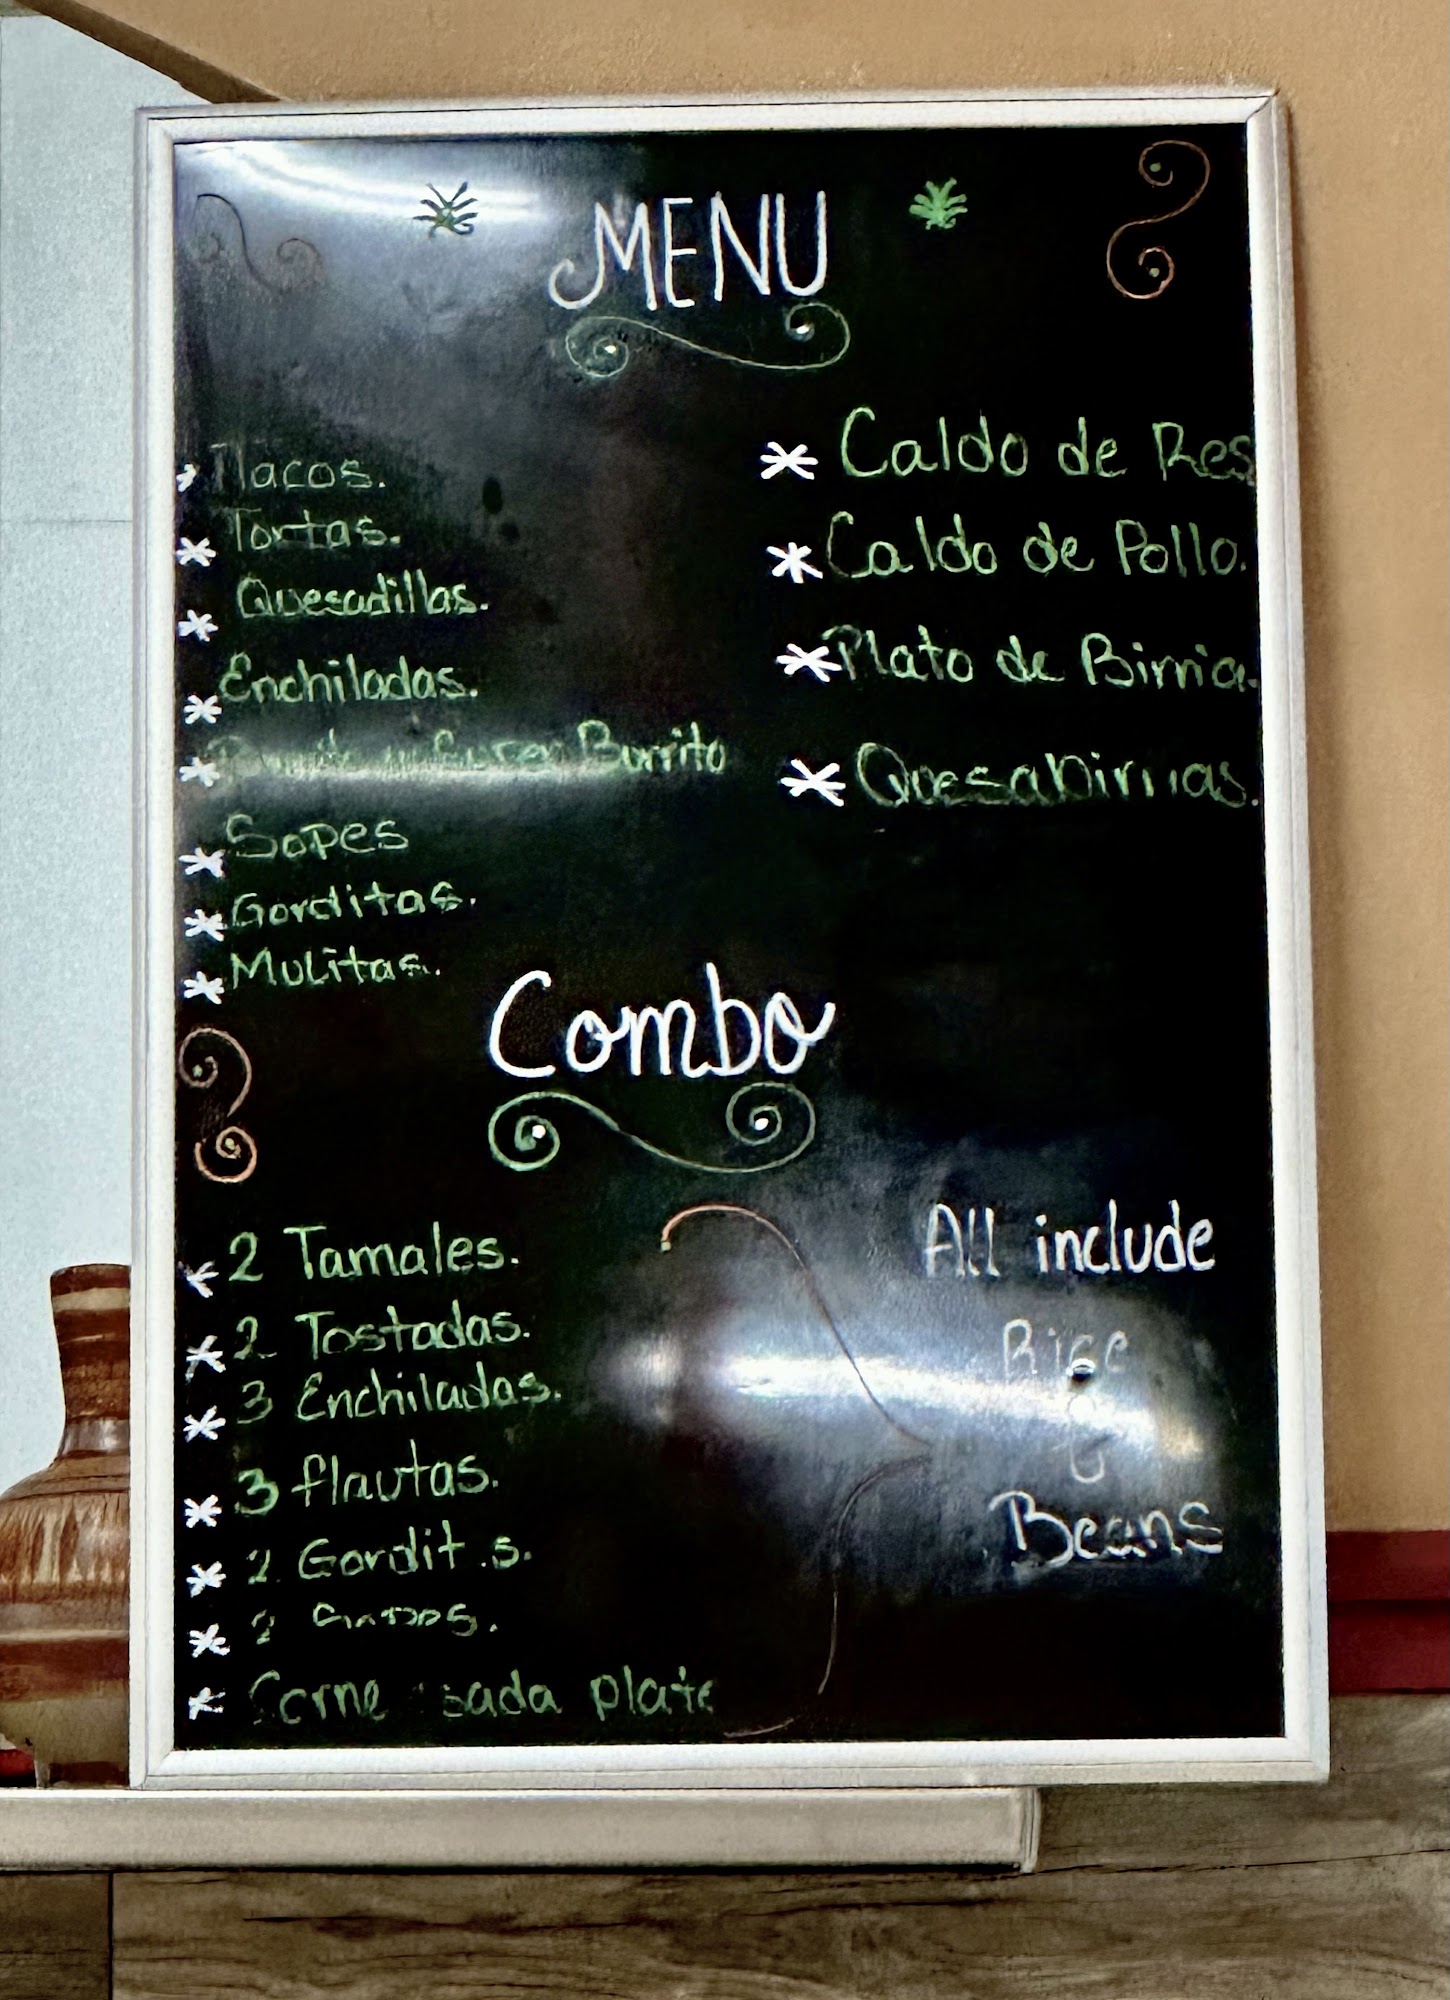 MENU
Tacos.
Tortas.
Quesadillas.
Enchiladas.
Burrito
Sopes
Gorditas.
Mulitas.
Caldo de Res
Caldo de Pollo.
Plato de Birria.
Quesabirrias.
Combo
2 Tamales.
2 Tostadas.
3 Enchiladas.
3 flautas.
2 Gordit.s.
2
Carne sada plate
All include
Rice
&
Beans